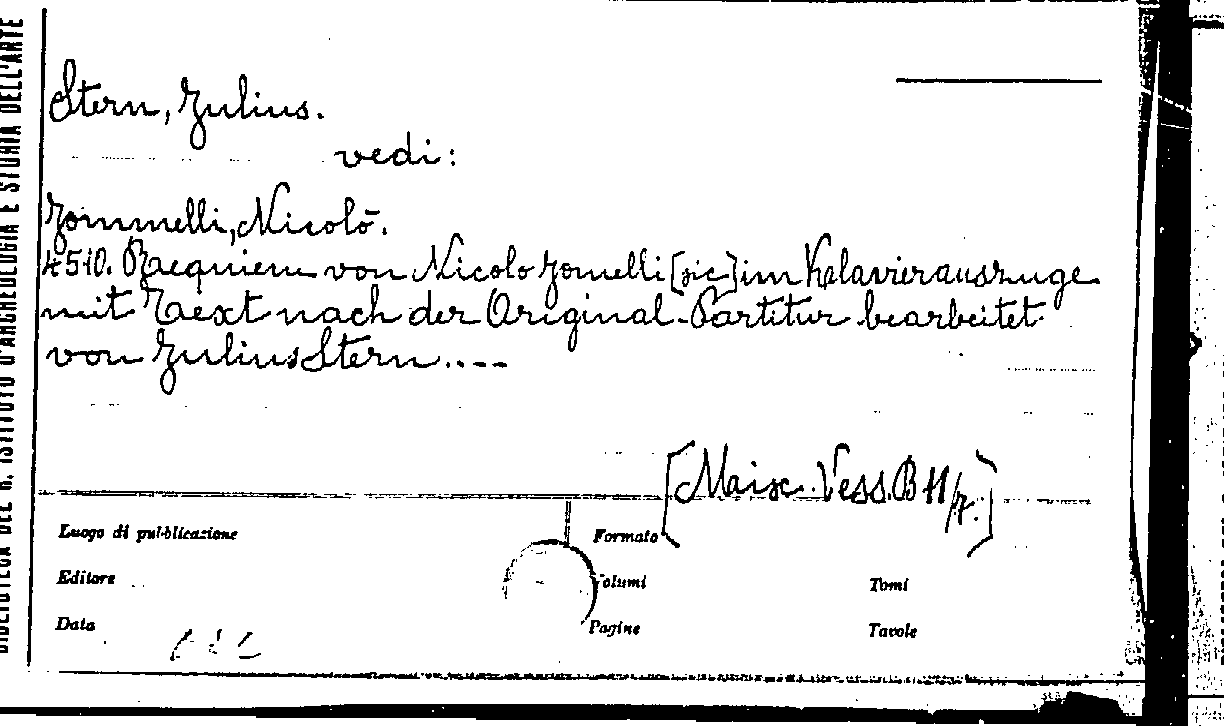 BIBLIOTECA DEL R. ISTITUTO D'ARCHEOLOGIA E STORIA DELL'ARTE
Stern, Julius.
vedi:
Jommelli, Nicolò.
4510. Raequiem von Nicolo Jomelli [sic] im Kelavierauszuge
mit Taext nach der Original-Partitur bearbeitet
von Julius Stern....
[Maisc. Vess. B 11/7.]
Luogo di pubblicazione
Formato
Editore
Volumi
Tomi
Data
Pagine
Tavole